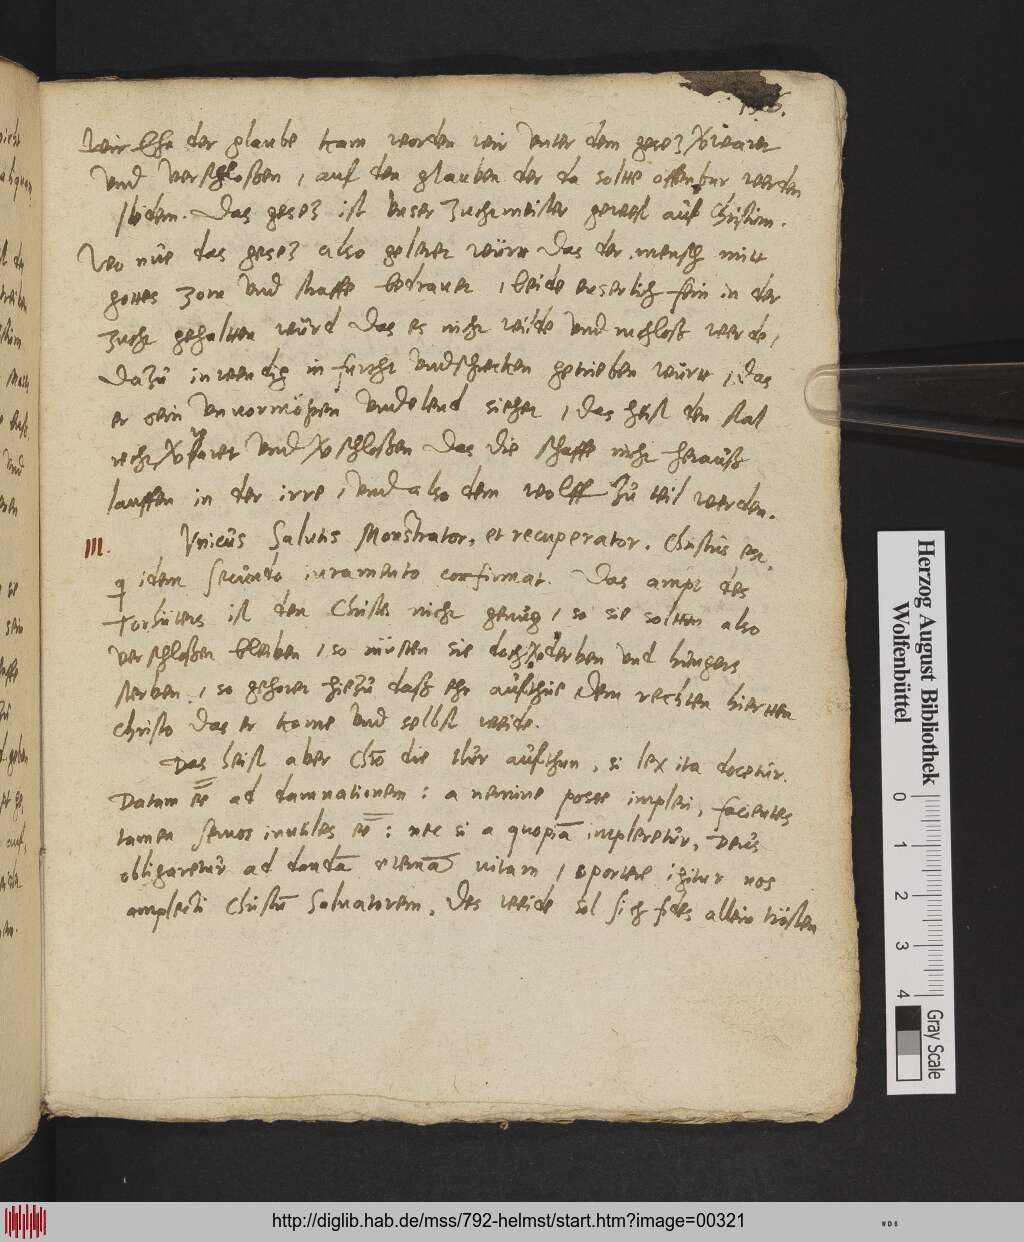 Ehe der glaube kam worden wir unter dem gesez verwaret
und verschloßen, auf den glauben der da solte offenbar werden
Ibidem. Das gesez ist unser zuchtmeister gewest auf Christum.
Wo nŭe das gesez also geleret württ das der mensch mitt
gottes zorn und straffe bedrauet, beide euserlich fein in der
zucht gehaltten würd das es nicht wilde und ruchlost werde,
Dazŭ inwendig in furcht und schrecken getrieben württ, das
er sein unvormößen und elend siehet, das heist den stal
recht verwaret und verschloßen das die schaffe nicht herauß
lauffen in der irre, und also dem wolff zŭ teil werden.
III. Vnicŭs Salutis Monstrator, et recuperator. Christŭs est,
q idem secŭndo iuramento confirmat. Das ampt des
Torhüters ist den Christen nicht genŭg, so sie soltten also
verschloßen bleiben, so müsten sie doch verderben und hŭngers
sterben, so gehoret hiezŭ daß ehr aŭfthŭe dem rechten hiertten
Christo das er kome und selbst weide.
Das heist aber Chro die thŭr aŭfthun, si lex ita docetŭr.
Datam ee ad damnationem: a nemine posse impleri, facientes
tamen seruos inutiles ee: nec si a quopiā impleretŭr, Deŭs
obligaretŭr ad dandā eternā vitam, oportere igitur nos
amplecti Christū Saluatorem, Des weide sol sich fides allein trösten
Herzog August Bibliothek
Wolfenbüttel
0 1 2 3 4
Gray Scale
http://diglib.hab.de/mss/792-helmst/start.htm?image=00321